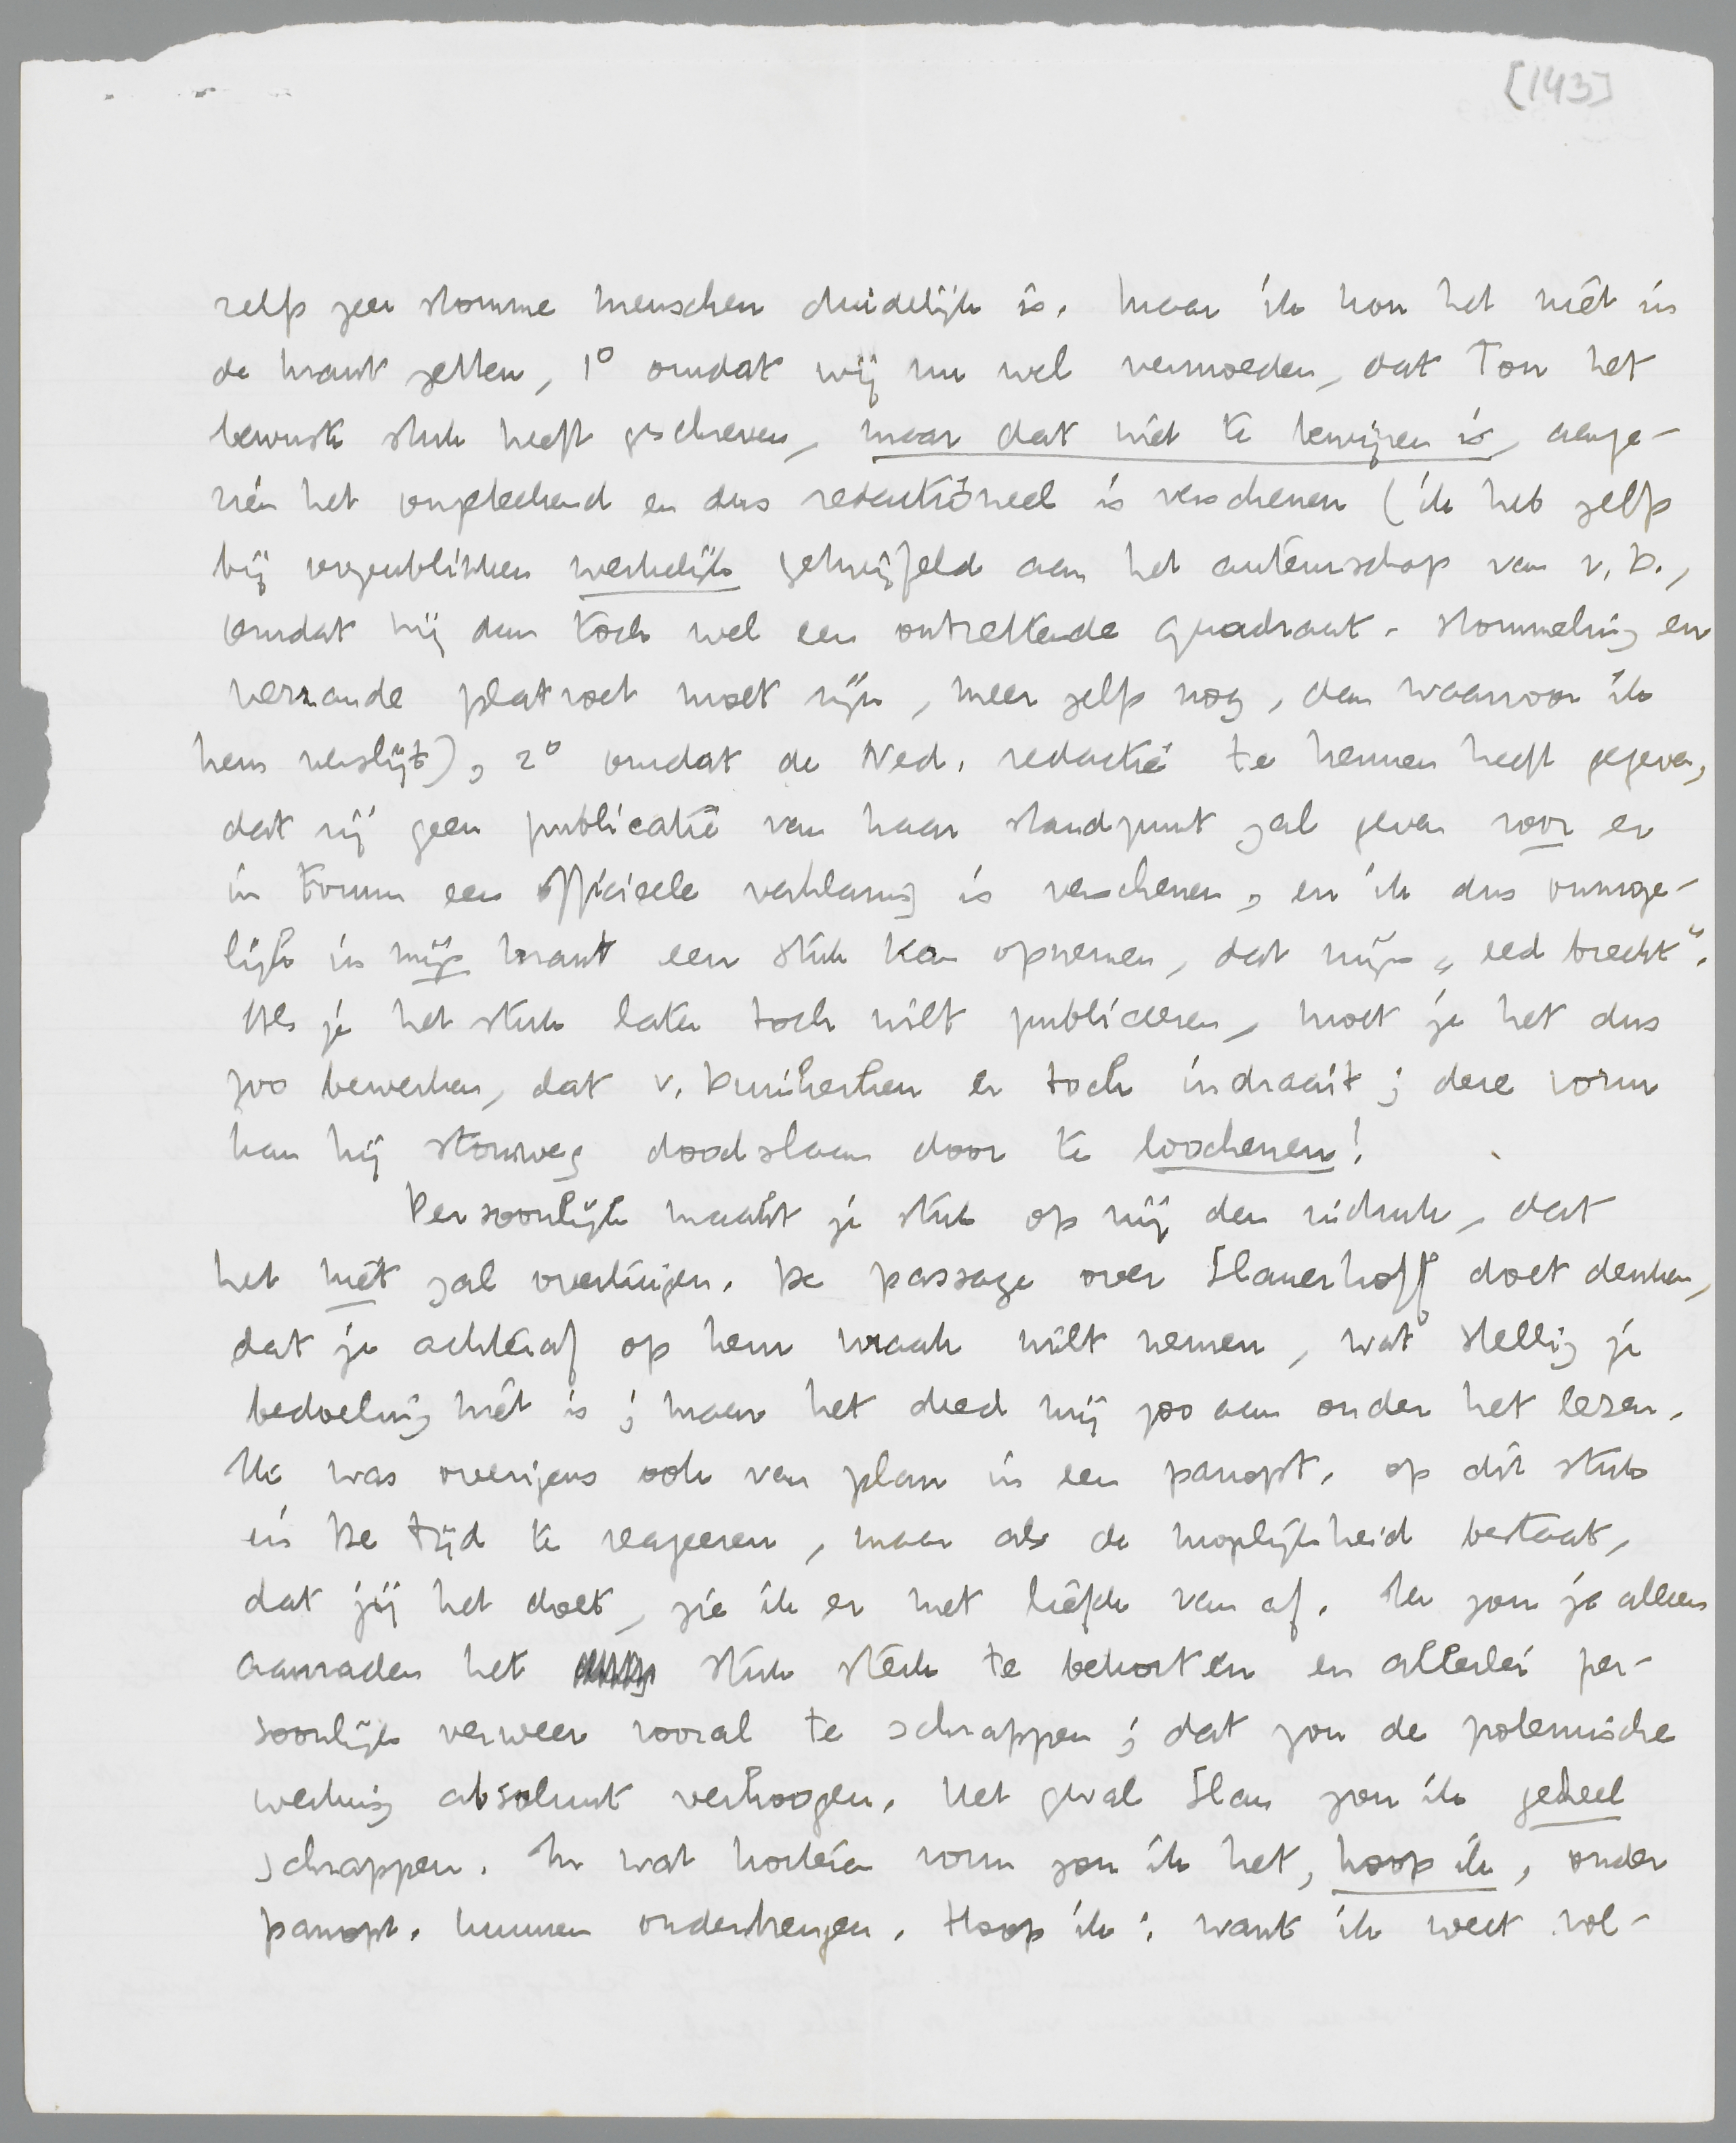 [143]
zelfs zeer stomme menschen duidelijk is. Maar ik kon het niet in
de krant zetten, 1° omdat wij nu wel vermoeden, dat Ton het
bewuste stuk heeft geschreven, maar dat niet te bewijzen is, aange-
zien het ongeteekend en dus redactioneel is verschenen (ik heb zelfs
bij oogenblikken werkelijk getwijfeld aan het auteurschap van v. D.,
omdat hij dan toch wel een ontzettende quadraat-stommeling en
verzande platvoet moet zijn, meer zelfs nog, dan waarvoor ik
hem verslijt), 2° omdat de Ned. redactie te kennen heeft gegeven,
dat zij geen publicatie van haar standpunt zal geven voor er
in Forum een officieele verklaring is verschenen, en ik dus onmoge-
lijk in mijn krant een stuk kan opnemen, dat mijn „eed breekt".
Als je het stuk later toch wilt publiceeren, moet je het dus
zoo bewerken, dat v. Duinkerken er toch indraait; deze vorm
kan hij stomweg doodslaan door te loochenen!
Persoonlijk maakt je stuk op mij den indruk, dat
het niet zal overtuigen. De passage over Slauerhoff doet denken,
dat je achteraf op hem wraak wilt nemen, wat stellig je
bedoeling niet is; maar het deed mij zoo aan onder het lezen.
Ik was overigens ook van plan in een panopt. op dit stuk
in De Tijd te reageeren, maar als de mogelijkheid bestaat,
dat jij het doet, zie ik er met liefde van af. Ik zou je alleen
aanraden het stuk sterk te bekorten en allerlei per-
soonlijk verweer vooral te schrappen; dat zou de polemische
werking absoluut verhoogen. Het geval Slau zou ik geheel
schrappen. In wat korteren vorm zou ik het, hoop ik, onder
panopt. kunnen onderbrengen. Hoop ik; want ik weet vol-